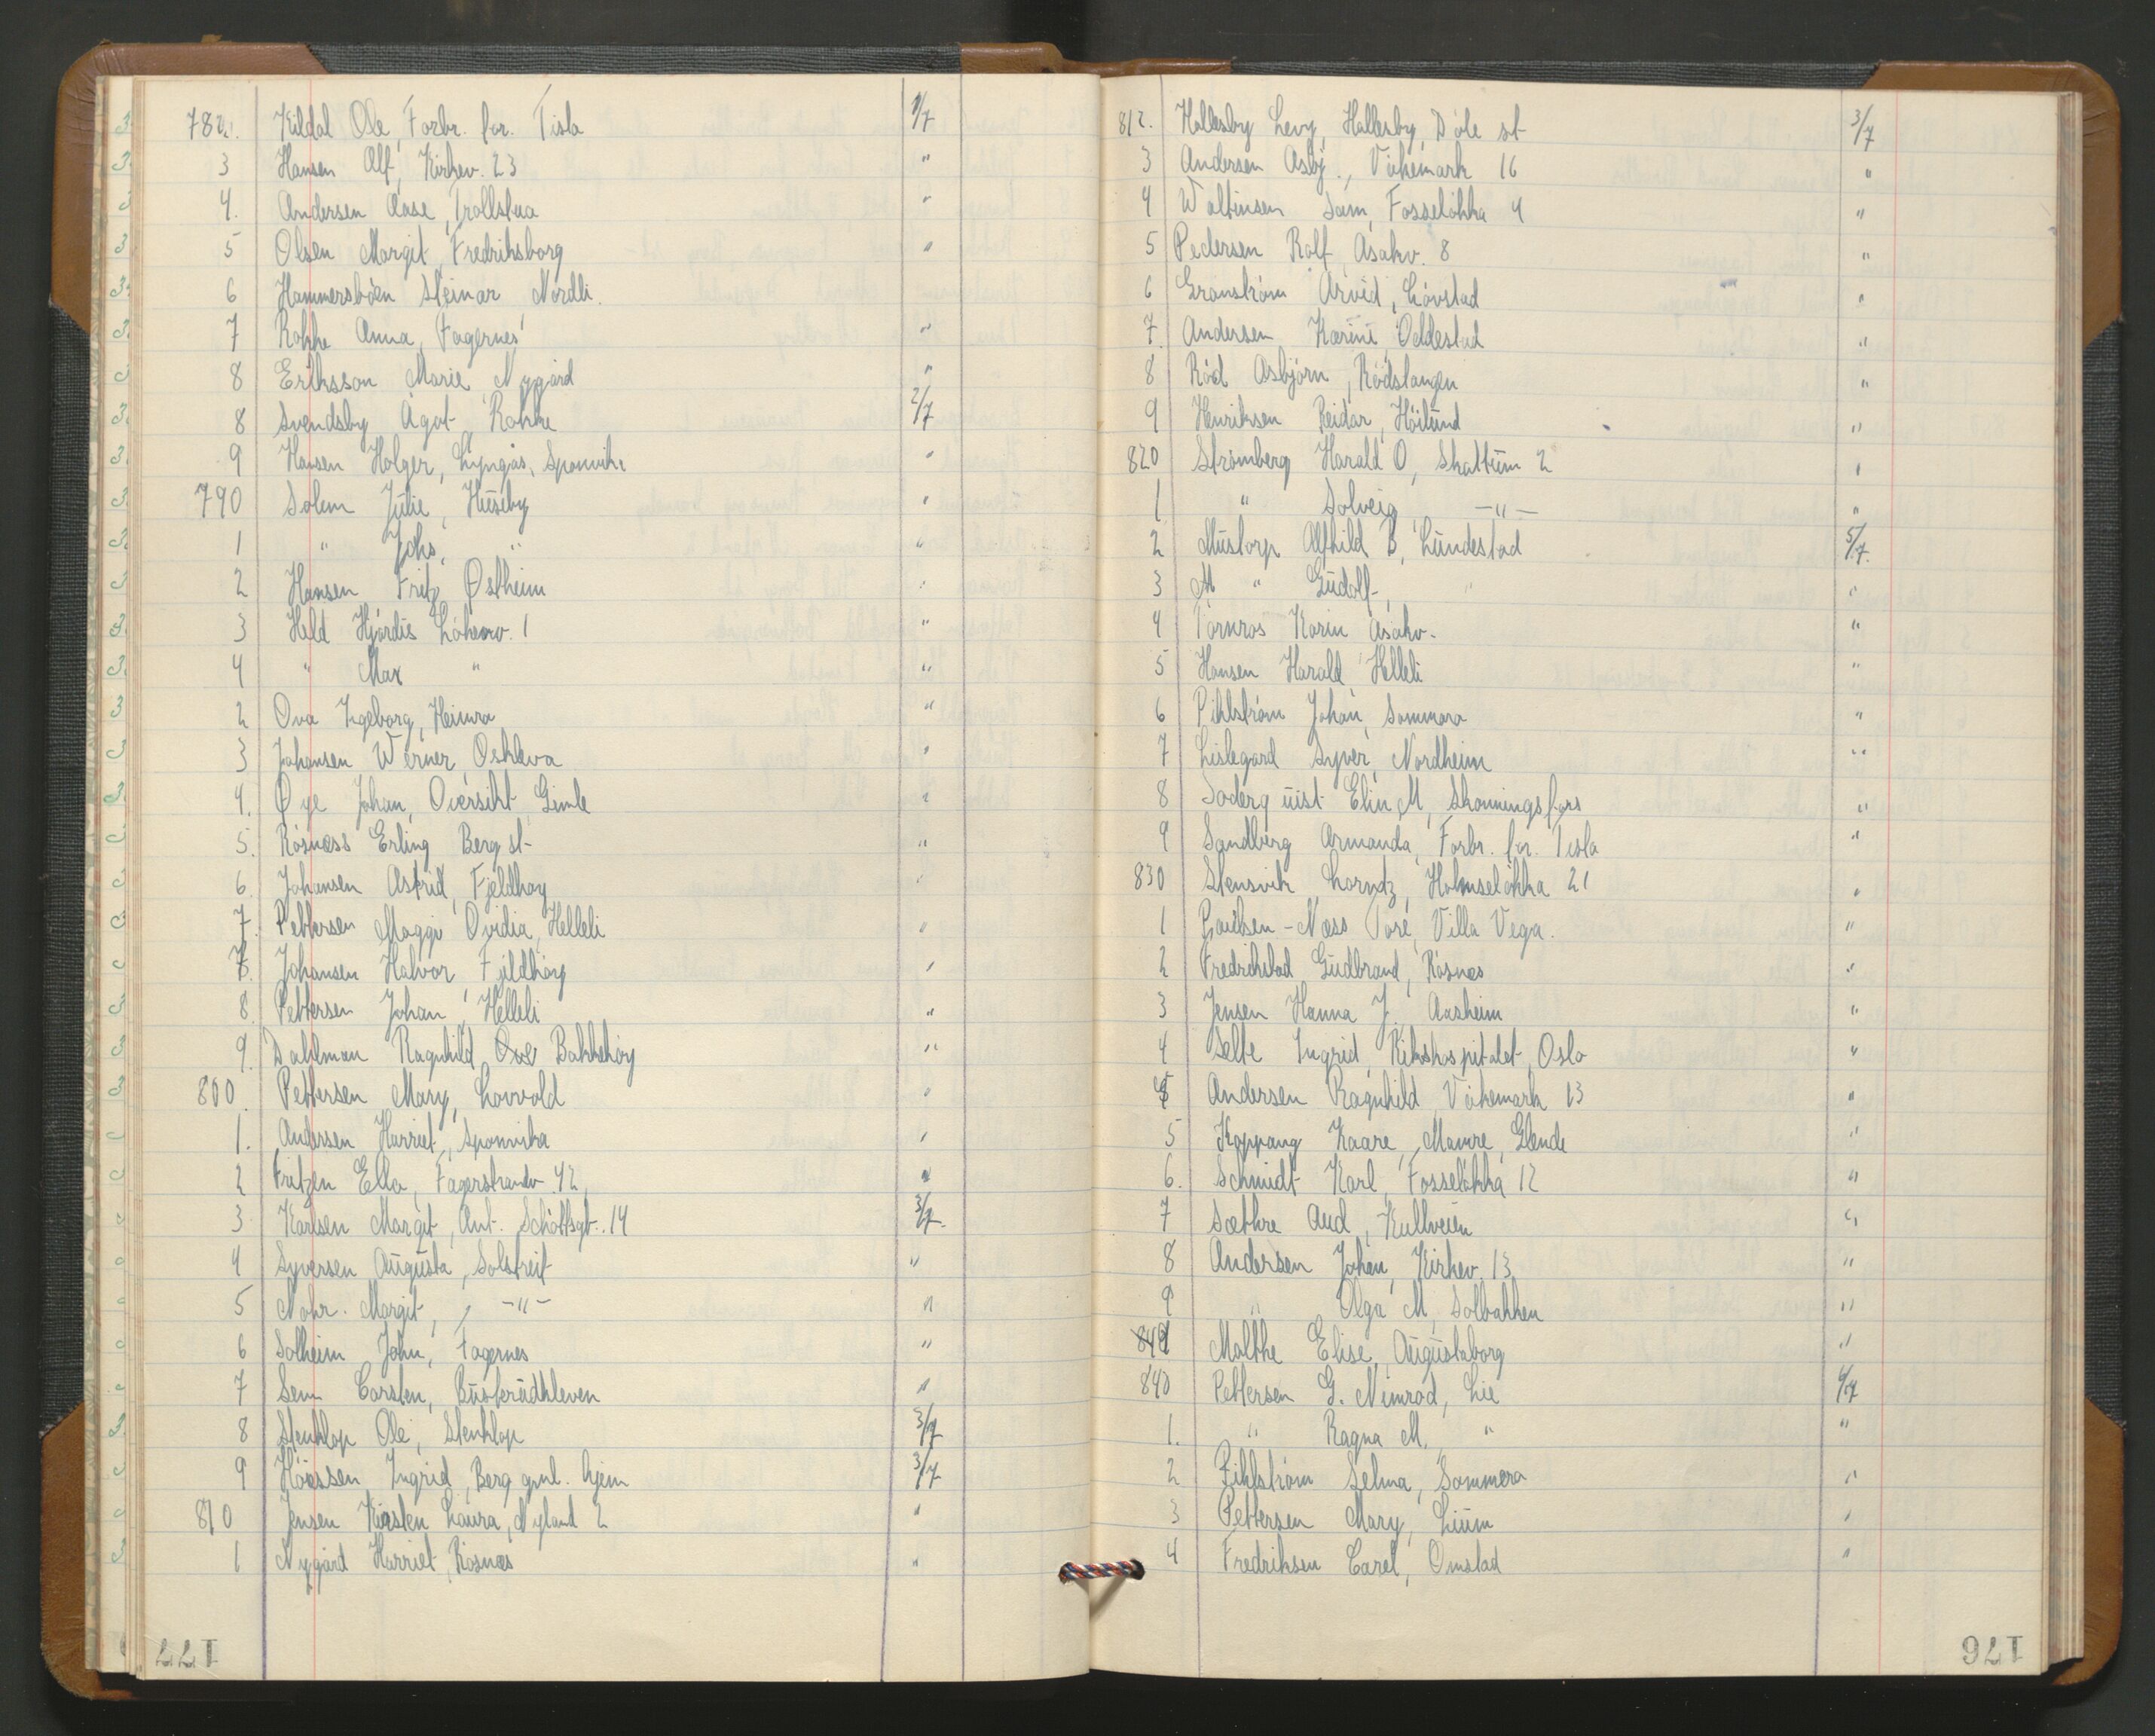 782. Kildal Ole, Forbr. for. Tisla 1/7
3 Hansen Alf, Kirkev. 23 "
4. Andersen Aase, Trollstua "
5 Olsen Margit, Fredriksborg "
6 Hammersböen Steinar, Nordli.
7 Rokke Anna, Fagernes "
8 Eriksson Marie, Nygård "
8 Svendsby Ågot, Rokke 2/7
9 Hansen Holger, Lyngås, Sponvika "
790 Solem Julie, Huseby "
1 " Johs, " "
2 Hansen Fritz Östheim "
3 Held Hjördis Lökenv. 1 "
4 " Max " "
2 Ova Ingeborg, Heimra "
3 Johansen Werner, Oskleva "
4. Øye Johan, Oversikt, Gimle "
5. Rösnæss Erling Berg st "
6. Johansen Astrid, Fjeldhöy "
7. Pettersen Maggi Ovidia, Helleli "
7. Johansen Halvor, Fjeldhöy "
8. Pettersen Johan, Helleli "
9. Dahlman Ragnhild Bakkehöy "
800. Pettersen Mary, Lovvold "
1. Andersen Harriet, Sponvika "
2 Fritzen Ella, Fagerstrandv. 42 "
3 Karlsen Margit, Ant. Schöttsgt. 14 3/7
4 Syversen Augusta, Solstreif "
5 Nohr. Margit, -"- "
6 Solheim John, Fagernes "
7 Sem Carsten, Buskrudkleven "
8 Stenklop Ole, Stenklop 3/7
9 Höessen Ingrid, Berg gml. hjem 3/7
810 Jensen Kirsten Laura, Nyland 2 "
1 Nygård Harriet, Rösnæs "
177
812. Hallesby Levy, Hallesby, Dåle st 3/7
3 Andersen Asbj., Virkemark 16 "
4 Waltinsen Sam, Fosselökka 4 "
5 Pedersen Rolf, Åsakv. 8 "
6 Granström Arvid, Lövstad "
7. Andersen Karini, Oddestad "
8 Röd Asbjörn, Rödstangen "
9 Henriksen Reidar, Höilund "
820 Strömberg Harald O, Skattum 2 "
1 " Solveig -"- "
2 Mustorp Alfhild B, Lundestad 5/7.
3 M " Gudolf, " "
4 Törnros Karin Åsakv. "
5 Hansen Harald Helleli "
6 Pihlström Johan, Sommero "
7 Lislegard Syver, Nordheim "
8 Söderquist Elin M, Skonningsfoss "
9 Sandberg Armanda, Forbr. for. Tisla "
830 Stensvik Lorndz, Holmselökka 21 "
1 Poulsen-Næss Tore, Villa Vega. "
2 Fredrikstad Gudbrand, Rösnes "
3 Jensen Hanna J. Aasheim "
4 Selte Ingrid, Rikshospitalet, Oslo "
5 Andersen Ragnhild, Virkemark 13 "
5 Koppang Kaare, Mamre, Glende "
6. Schmidt Karl, Fosselökka 12 "
7 Sæthre Aud, Kullveien "
8 Andersen Johan, Kirkev. 13 "
9 " Olga M, Solbakken "
840 Malthe Elise, Augustaborg "
840 Pettersen G. Nimrod, Lie 4/7
1. " Ragna M, " "
2 Pihlström Selma, Sommero "
3 Pettersen Mary, Lium "
4 Fredriksen Carel, Omstad "
176